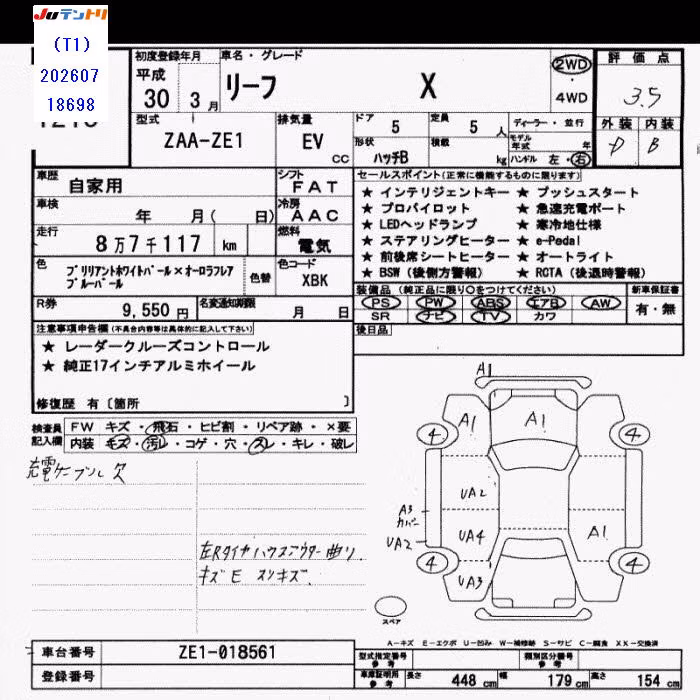 Juテントリ
(T1)
202607
18698
初度登録年月
平成
30 3 月
車名・グレード
リーフ X
2WD
・
4WD
評価点
3.5
外装 内装
D B
型式
ZAA-ZE1
排気量
EV
CC
ドア 5
定員 5 人
ディーラー・並行
形状
ハッチB
積載
kg
モデル年式 年
ハンドル 左・右
車歴
自家用
シフト
FAT
車検
年 月( 日)
冷房
AAC
走行
8 万 7 千 117 km
燃料
電気
色
ブリリアントホワイトパール×オーロラフレア
ブルーパール
色替
色コード
XBK
R券
9,550 円
名変通知期限
月 日
セールスポイント(正常に機能するものに限ります)
★ インテリジェントキー ★ プッシュスタート
★ プロパイロット ★ 急速充電ポート
★ LEDヘッドランプ ★ 寒冷地仕様
★ ステアリングヒーター ★ e-Pedal
★ 前後席シートヒーター ★ オートライト
★ BSW(後側方警報) ★ RCTA(後退時警報)
装備品(純正品に限り○をつけてください)
新車保証書
PS PW ABS エアB AW
SR ナビ TV カワ
有・無
後日品
注意事項申告欄(不具合内容等は具体的に記入して下さい)
★ レーダークルーズコントロール
★ 純正17インチアルミホイール
修復歴 有〔箇所 〕
検査員
記入欄
FW キズ・飛石・ヒビ割・リペア跡・×要
内装 キズ・汚レ・コゲ・穴・スレ・キレ・破レ
充電ケーブル欠
左Rタイヤハウスアウター曲り
キズE スリキズ.
A1
A1
A1
4
4
UA2
A3
カバー
UA2
UA4
A1
4
UA3
4
スペア
A-キズ E-エクボ U-凹み W-補修跡 S-サビ C-腐食 XX-交換済
車台番号
ZE1-018561
登録番号
型式指定番号
参考
類別区分番号
参考
車庫証明用
参考
長さ 448 cm
幅 179 cm
高さ 154 cm